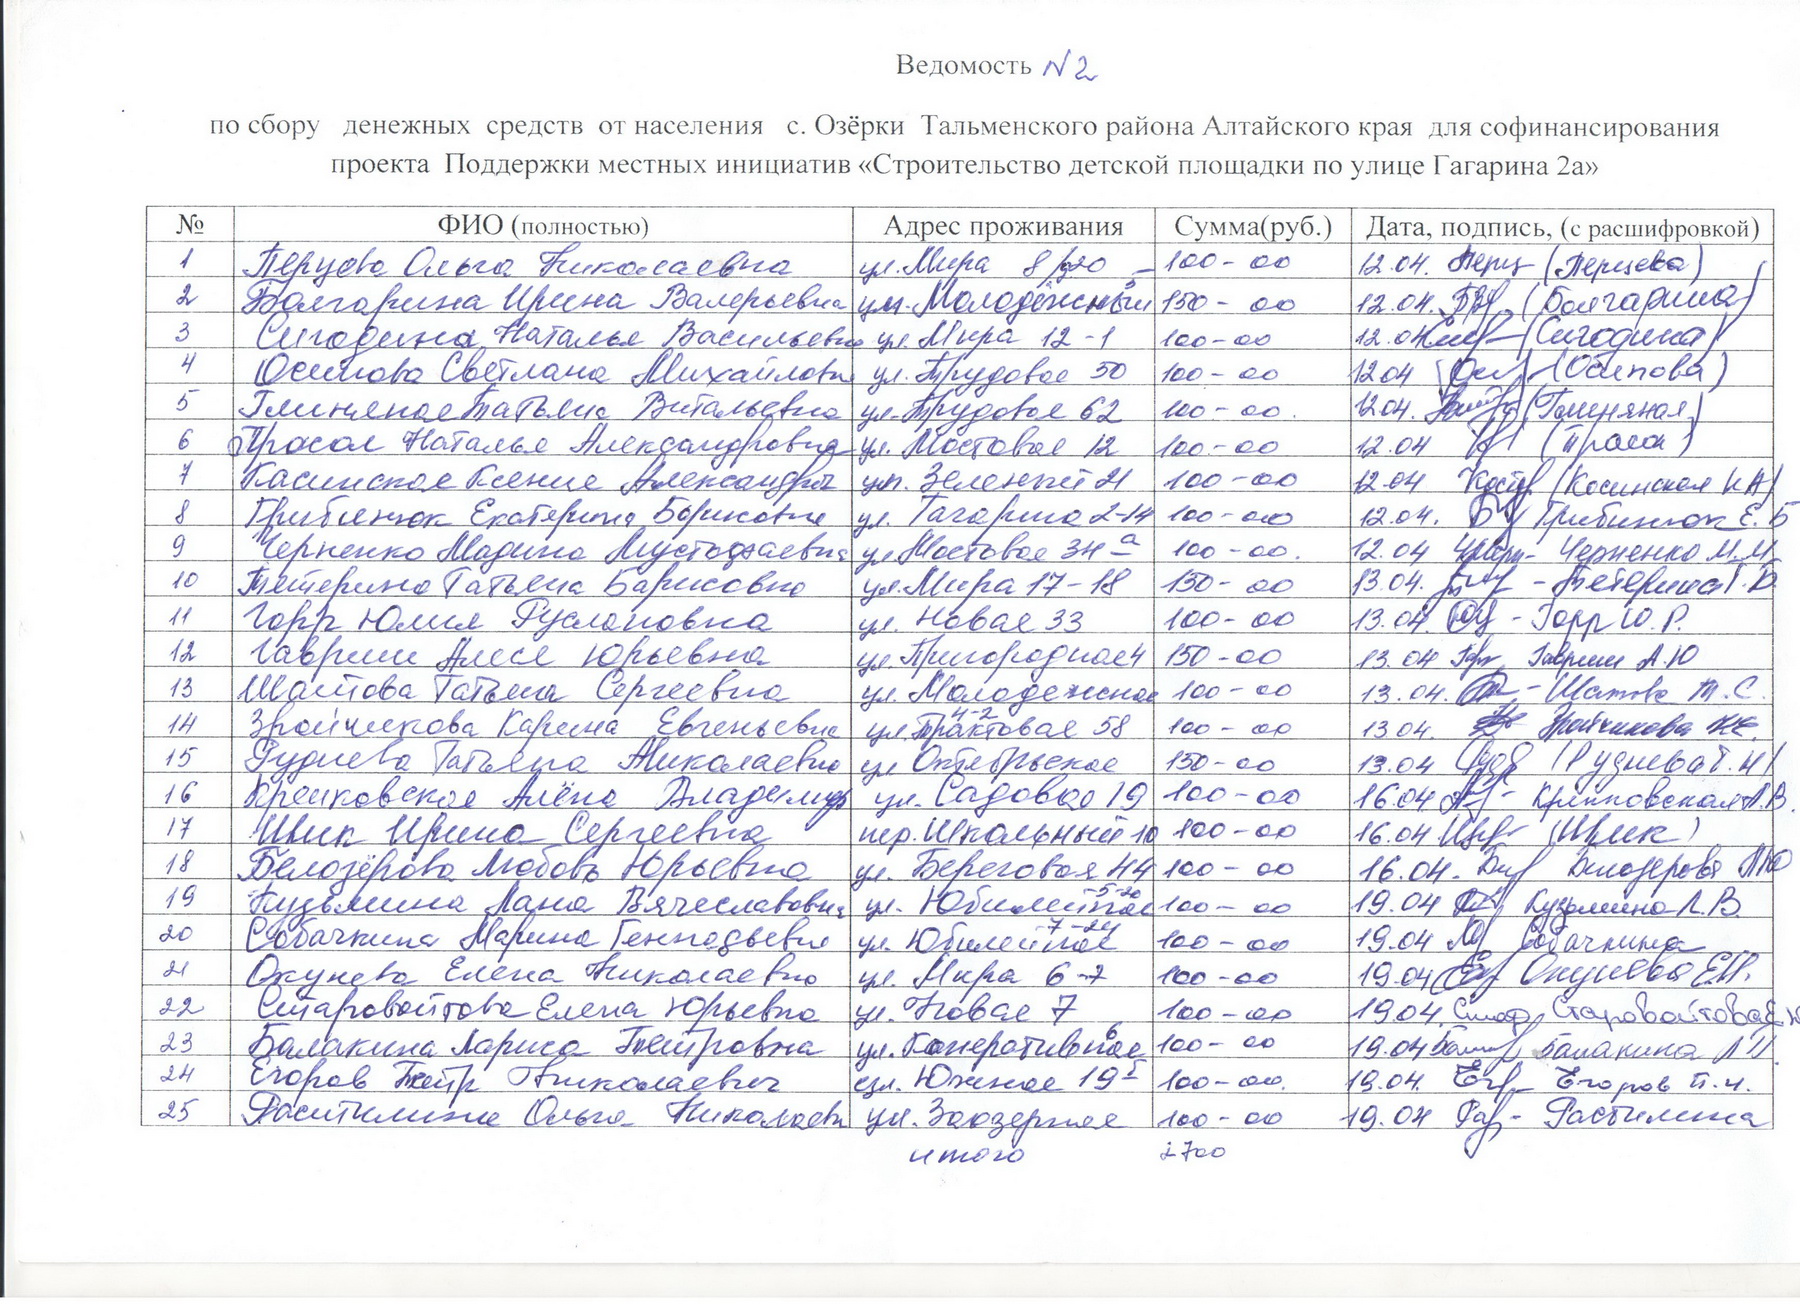 Ведомость N 2
по сбору денежных средств от населения с. Озёрки Тальменского района Алтайского края для софинансирования
проекта Поддержки местных инициатив «Строительство детской площадки по улице Гагарина 2а»
№ ФИО (полностью) Адрес проживания Сумма(руб.) Дата, подпись, (с расшифровкой)
1 Перцева Ольга Николаевна ул. Мира 100-00 12.04. (Перцева)
2 Болгарина Ирина Валерьевна 150-00 12.04. (Болгарина)
3 Сигодина Наталья Васильевна ул. Мира 12-1 100-00 12.04 (Сигодина)
4 Осипова Светлана Михайловна ул. Трудовая 50 100-00 12.04 (Осипова)
5 Глиняная Татьяна Витальевна ул. Трудовая 62 100-00. 12.04. (Глиняная)
6 Просол Наталья Александровна ул. Мостовая 12 100-00 12.04
7 Касинская Ксения ул. Зеленый 21 100-00 12.04 (Косинская К А)
8 Грибинюк Екатерина Борисовна ул. Гагарина 2-14 100-00 12.04. Грибинюк Е. Б
9 Черненко Мадина Мустафаевна ул. Мостовая 34 а 100-00. 12.04 Черненко М.М.
10 Тетерина Татьяна Барисовна ул. Мира 17-18 150-00 13.04. - Тетерина Т.Б
11 Горр Юлия Руслановна ул. Новая 33 100-00 13.04. - Горр Ю.Р.
12 Гаврин Алеся Юрьевна ул. Пригородная 4 150-00 13.04 Гаврин А.Ю
13 Шатова Татьяна Сергеевна ул. Молодежная 4-2 100-00 13.04. - Шатова Т.С.
14 Зрайчикова Карина Евгеньевна ул. Трактовая 58 100-00 13.04. Зрайчикова
15 Руднева Татьяна Николаевна ул Октябрьская 150-00 13.04 (Руднева Т.Н)
16 Алёна ул. Садовая 19 100-00 16.04
17 Шик Ирина Сергеевна пер. Школьный 10 100-00 16.04 (Шик)
18 Белозёрова Любовь Юрьевна ул. Береговая 44 100-00 16.04. Белозерова ЛЮ
19 Кузьмина Лана Вячеславовна ул. Юбилейная -5-20 100-00 19.04 Кузьмина Л.В.
20 Собачкина Марина Геннадьевна ул. Юбилейная 100-00 19.04 Собачкина
21 Окунева Елена Николаевна ул. Мира 6-7 100-00 19.04 Окунева Е.Н.
22 Старовойтова Елена Юрьевна ул. Новая 7 100-00 19.04. Старовойтова Е.Ю
23 Балакина Лариса Петровна ул. Кооперативная 6 100-00 19.04 Балакина Л П.
24 Егоров Петр Николаевич ул. Южная 19 100-00. 19.04. Егоров П.Н.
25 Растилина Ольга Николаевн ул. Заозерная 100-00 19.04 - Растилина
итого 2700